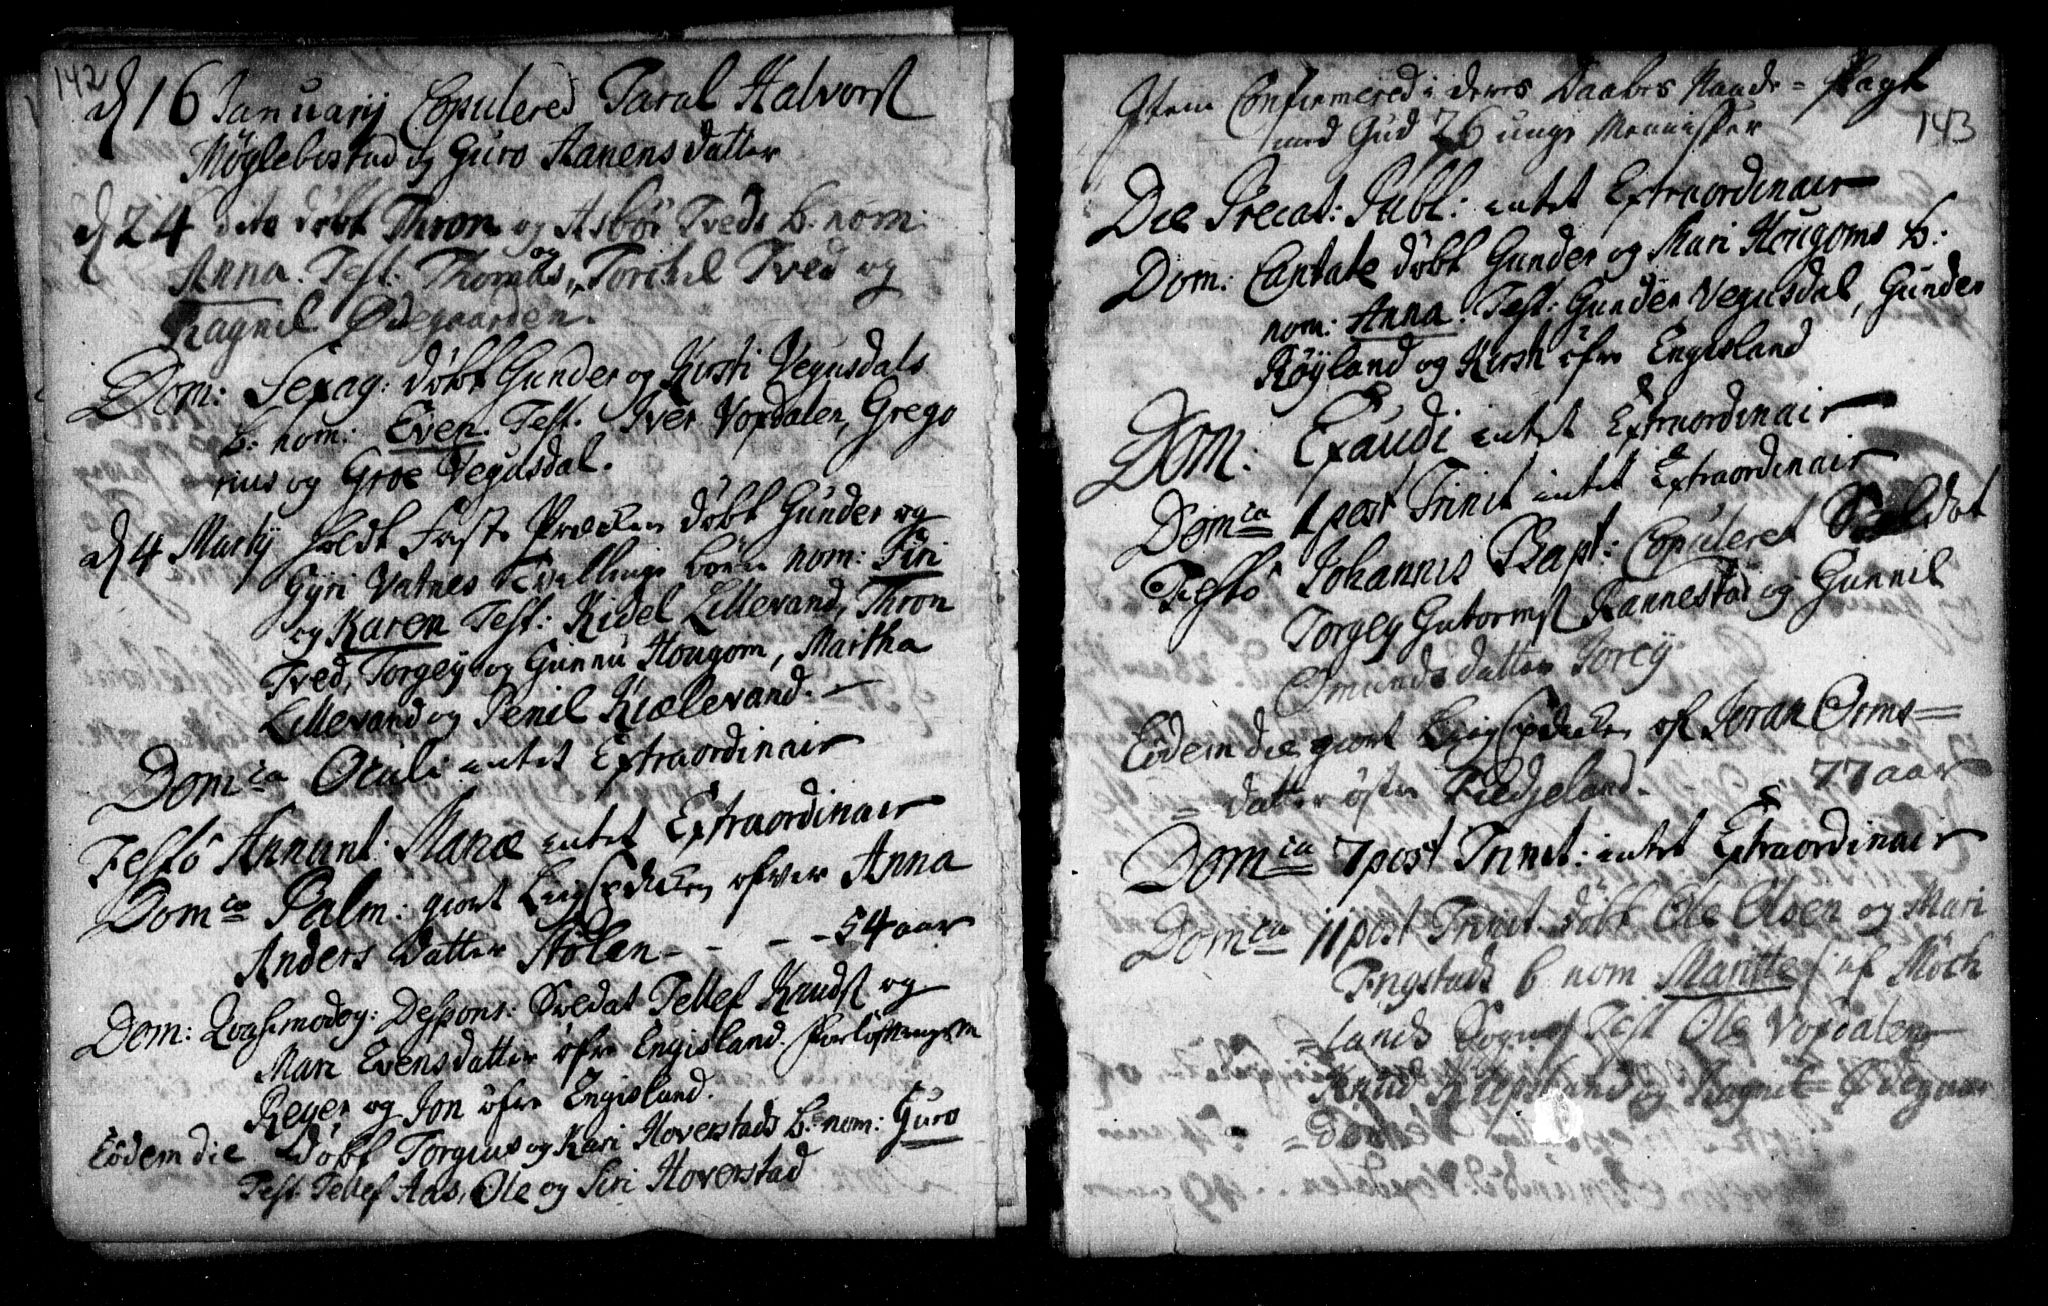 142
d 16 Januarij Copulered Taral Halvorst
Møglebostad og Guro Aanensdatter
d 24 dito døbt Thron og Asbør Tveds b: nom:
Anna. Test: Thomas, og Torchel Tved og
Ragnil Ødegaarden.
Dom: Sexag: døbt Gunder og Kirsti Vegusdals
b: nom: Even. Test. Iver Voxdalen, Grego
rius og Groe Vegusdal.
d 4 Martij holdt Faste Prædiken døbt Gunder og
Gyri Vatnes Tvillinge børn nom: Siri
og Karen Test: Kidel Lillevand, Thron
Tved, Torgey og Gunnu Hougom, Martha
Lillevand og Penil Kiælevand.
Dom ca Oculi intet Extraordinair
Festo Annunt: Mariæ intet Extraordinair
Dom ca Palm: giort Liig Prædicken ofver Anna
Anders datter Stølen - - - 54 aar
Dom: Quasimodog: Despons: Soldat Tellef Knudst og
Mari Evensdatter øfre Engisland. Forløftningsm
Reyer og Jon øfre Engisland.
Eodem die døbt Torgius og Kari Hoverstads b: nom: Guro
Test. Tellef Aas, Ole og Siri Hoverstad
143
Item Confirmered i deres Daabes Naade = Pagt
med Gud 26 unge Mennisker
Die Precat: Publ: intet Extraordinair
Dom: Cantate døbt Gunder og Mari Hougoms b:
nom: Anna. Test: Gunder Vegusdal, Gunder
Røyland og Kirsti øfre Engisland
Dom: Exaudi intet Extraordinair
Dom ca 1 post Trinit intet Extraordinair
Festo Johannis Bapt: Copuleret Soldat
Torgey Gutormst Rannestad og Gunnil
Omunds datter Jorey
Eodem die giort Liig Prædicken of Joran Orms=
= datter østre Fledgeland. 77 aar
Dom ca 7 post Trinit: intet Extraordinair
Dom ca 11 post Trinit. døbt Ole Olsen og Mari
Engstads b nom Maritte / af Møch
=lands Sogn / Test Ole Voxdalen
Knud og Ragnil Ødegaar
=den